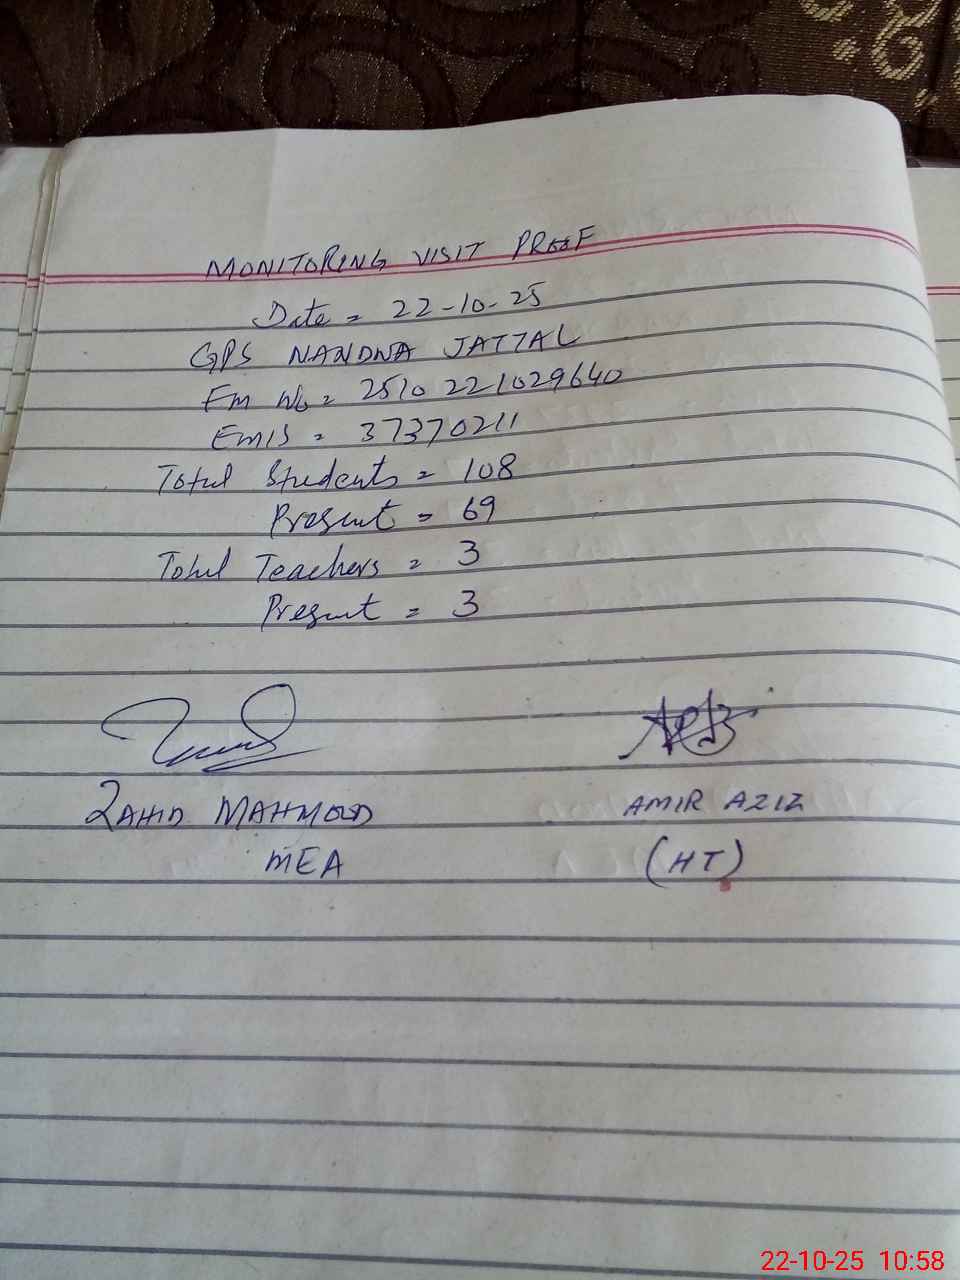 MONITORING VISIT PROOF
Date = 22-10-25
GPS NANDNA JATTAL
Em No = 2510221029640
EMIS = 37370211
Total Students = 108
Present = 69
Total Teachers = 3
Present = 3
ZAHID MAHMOOD
AMIR AZIZ
MEA
(HT)
22-10-25 10:58